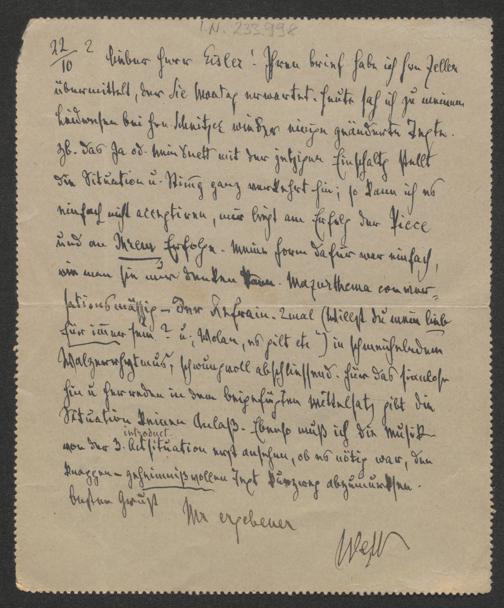 I.N. 233.998
22/10 2 Lieber Herr Eisler! Ihren Brief habe ich Hrn Zeller
übermittelt, der Sie Montag erwartet. Heute sah ich zu meinem
Leidwesen bei Hrn Schnitzer wieder einige geänderte Texte.
Zb. das Ja od. Nein Duett mit der jetzigen Einschaltg stellt
die Situation u. Stimg ganz verkehrt hin; so kann ich es
einfach nicht acceptieren, mir liegt am Erfolg der Piece
und an Ihrem Erfolge. Meine Form dafür war einfach,
wie man sie nur denken kann. Mazurthema conver-
sationsmässig – der Refrain 2mal (Willst du mein lieb
für immer sein? u. Wolan, es gilt etc") in schmeichelndem
Walzerrhytmus, schwungvoll abschliessend. Für das sinnlose
hin u herreden in dem beigefügten Mittelsatz gibt die
Situation keinen Anlaß. Ebenso muß ich die Musik
von der 3. Akt introduct. situation erst ansehen, ob es nötig war, den
knappen – geheimnißvollen Text kurzweg abzumurksen.
Besten Gruß
Ihr ergebener